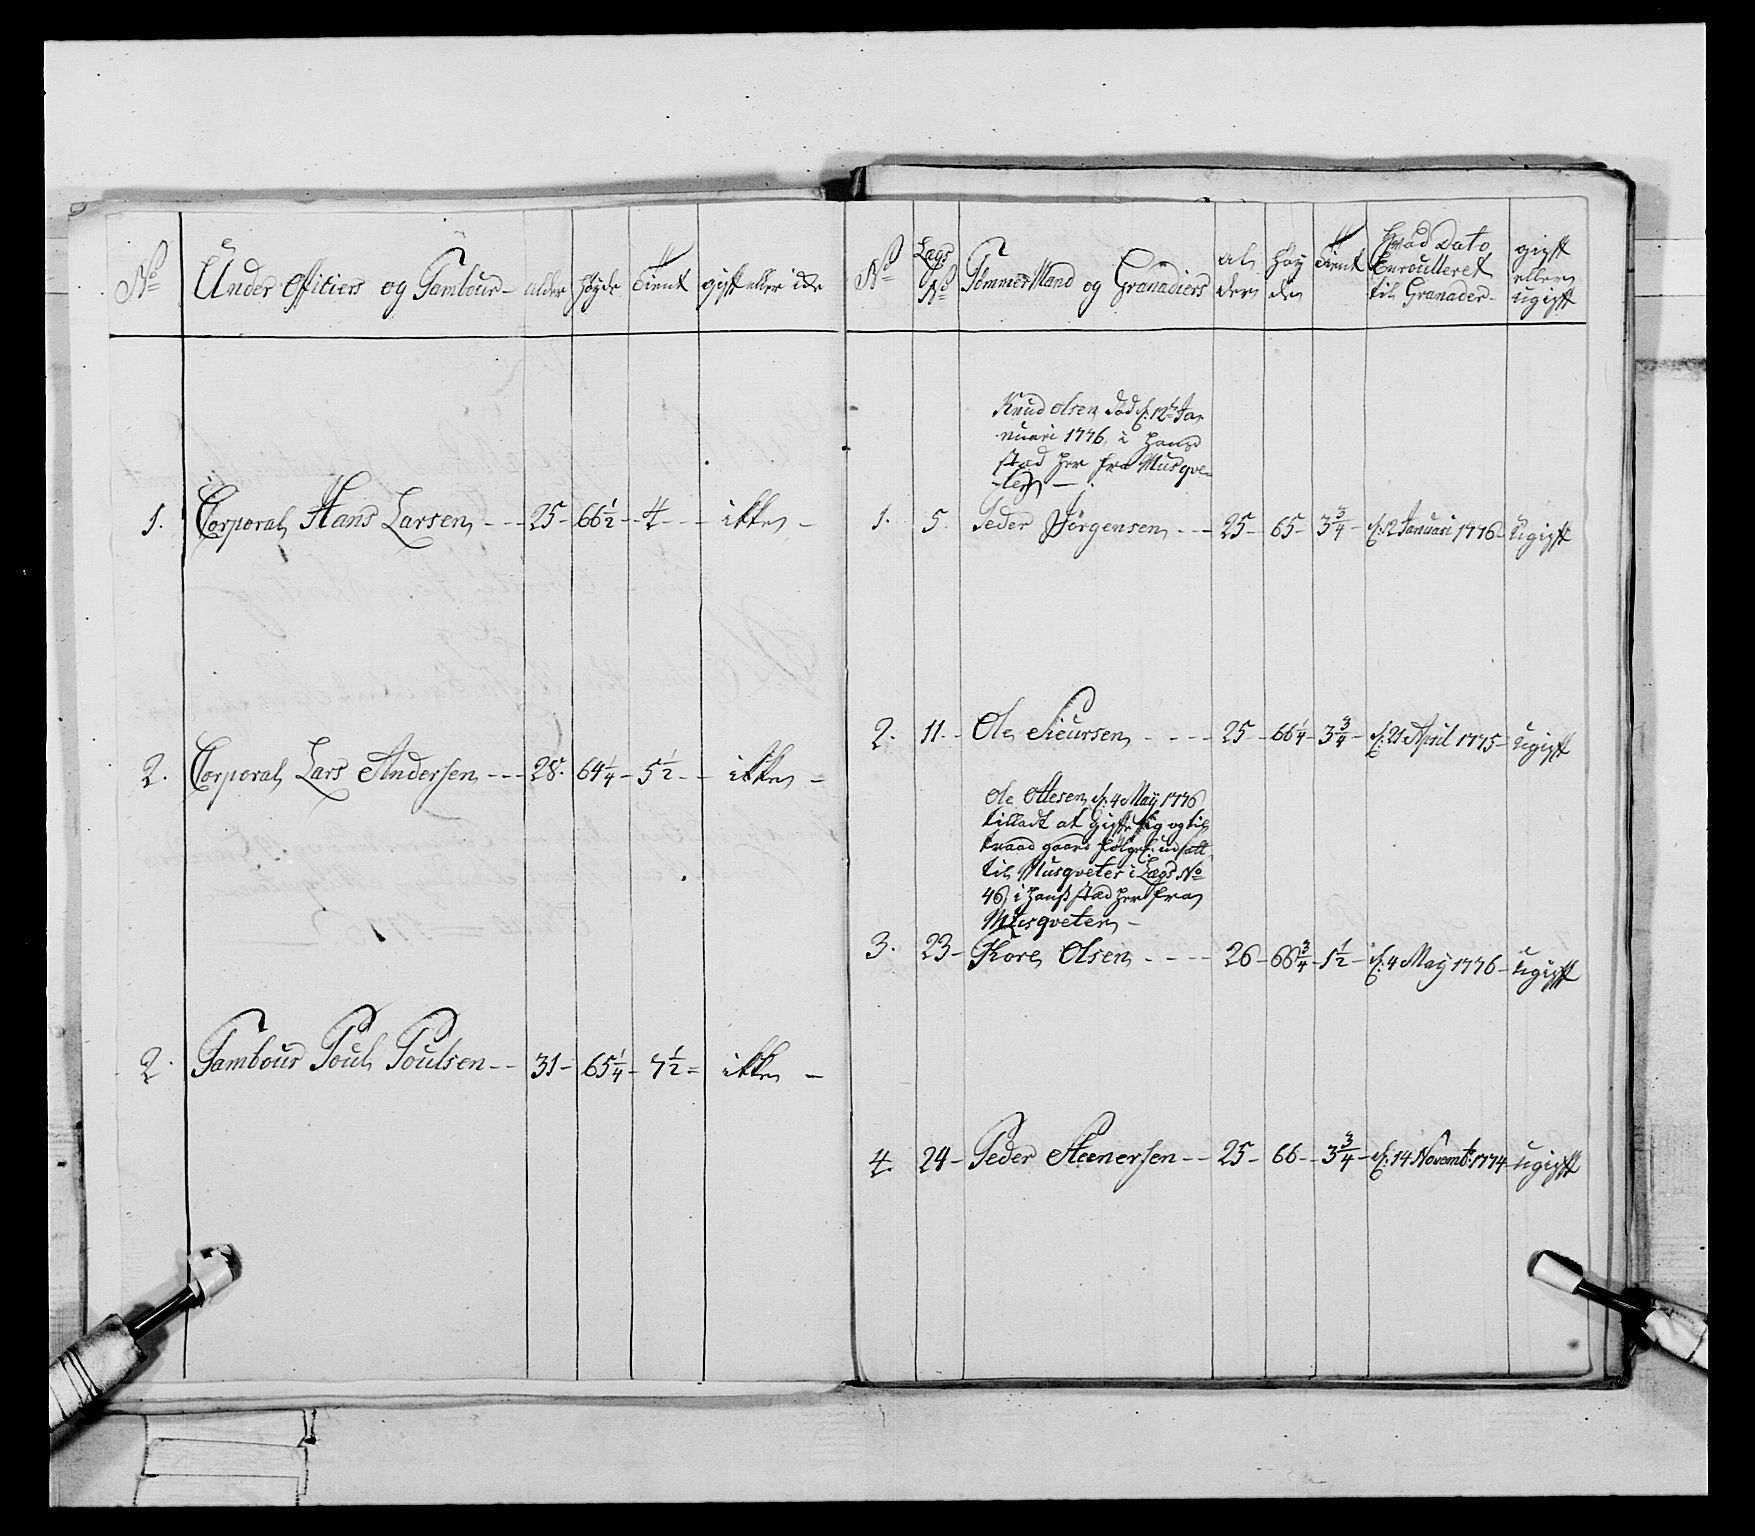 No
Under Officiers og Tambour
alder
Høyde
Tient
gift eller icke
1. Corporal Hans Larsen - - - 25 - 66 1/2 - 4 - - ikke -
2. Corporal Lars Andersen - - - 28. 64 1/4 - 5 1/2 - - ikke -
2. Tambour Poul Poulsen - - 31 - 65 1/4 - 7 1/2 = ikke -
No
Lægs
No
Tømmer Mand og Granadiers
al
der
Høy
de
Tient
Hvad Dato
Enroulleret
til Granader -
gift
eller
ugift
Knud Olsen død d: 12te Ja-
nuari 1776, i Hans
stæd her fra Musqve-
ter -
1. 5. Peder Jørgensen - - - 25 - 65 - 3 3/4 - d: 12 Januari 1776 - Ugift
2. 11. - Ole Sieursen - - - - 25 - 66 1/4 - 3 3/4 - d: 21 April 1775 - Ugift
Ole Ottesen d: 4 May 1776
tilladt at gifte sig og til
traad gaard følgel: udsatt
til Musqveter i Lægs No
46, i Hans stæd her fra
Musqveter -
3. 23 - Kore Olsen - - - - 26 - 66 3/4 - 1 1/2 - d: 4 May 1776 - Ugift
4. 24 - Peder Steenersen - - 25 - 66 - 3 3/4 - d: 14 Novemb: 1774 - ugift